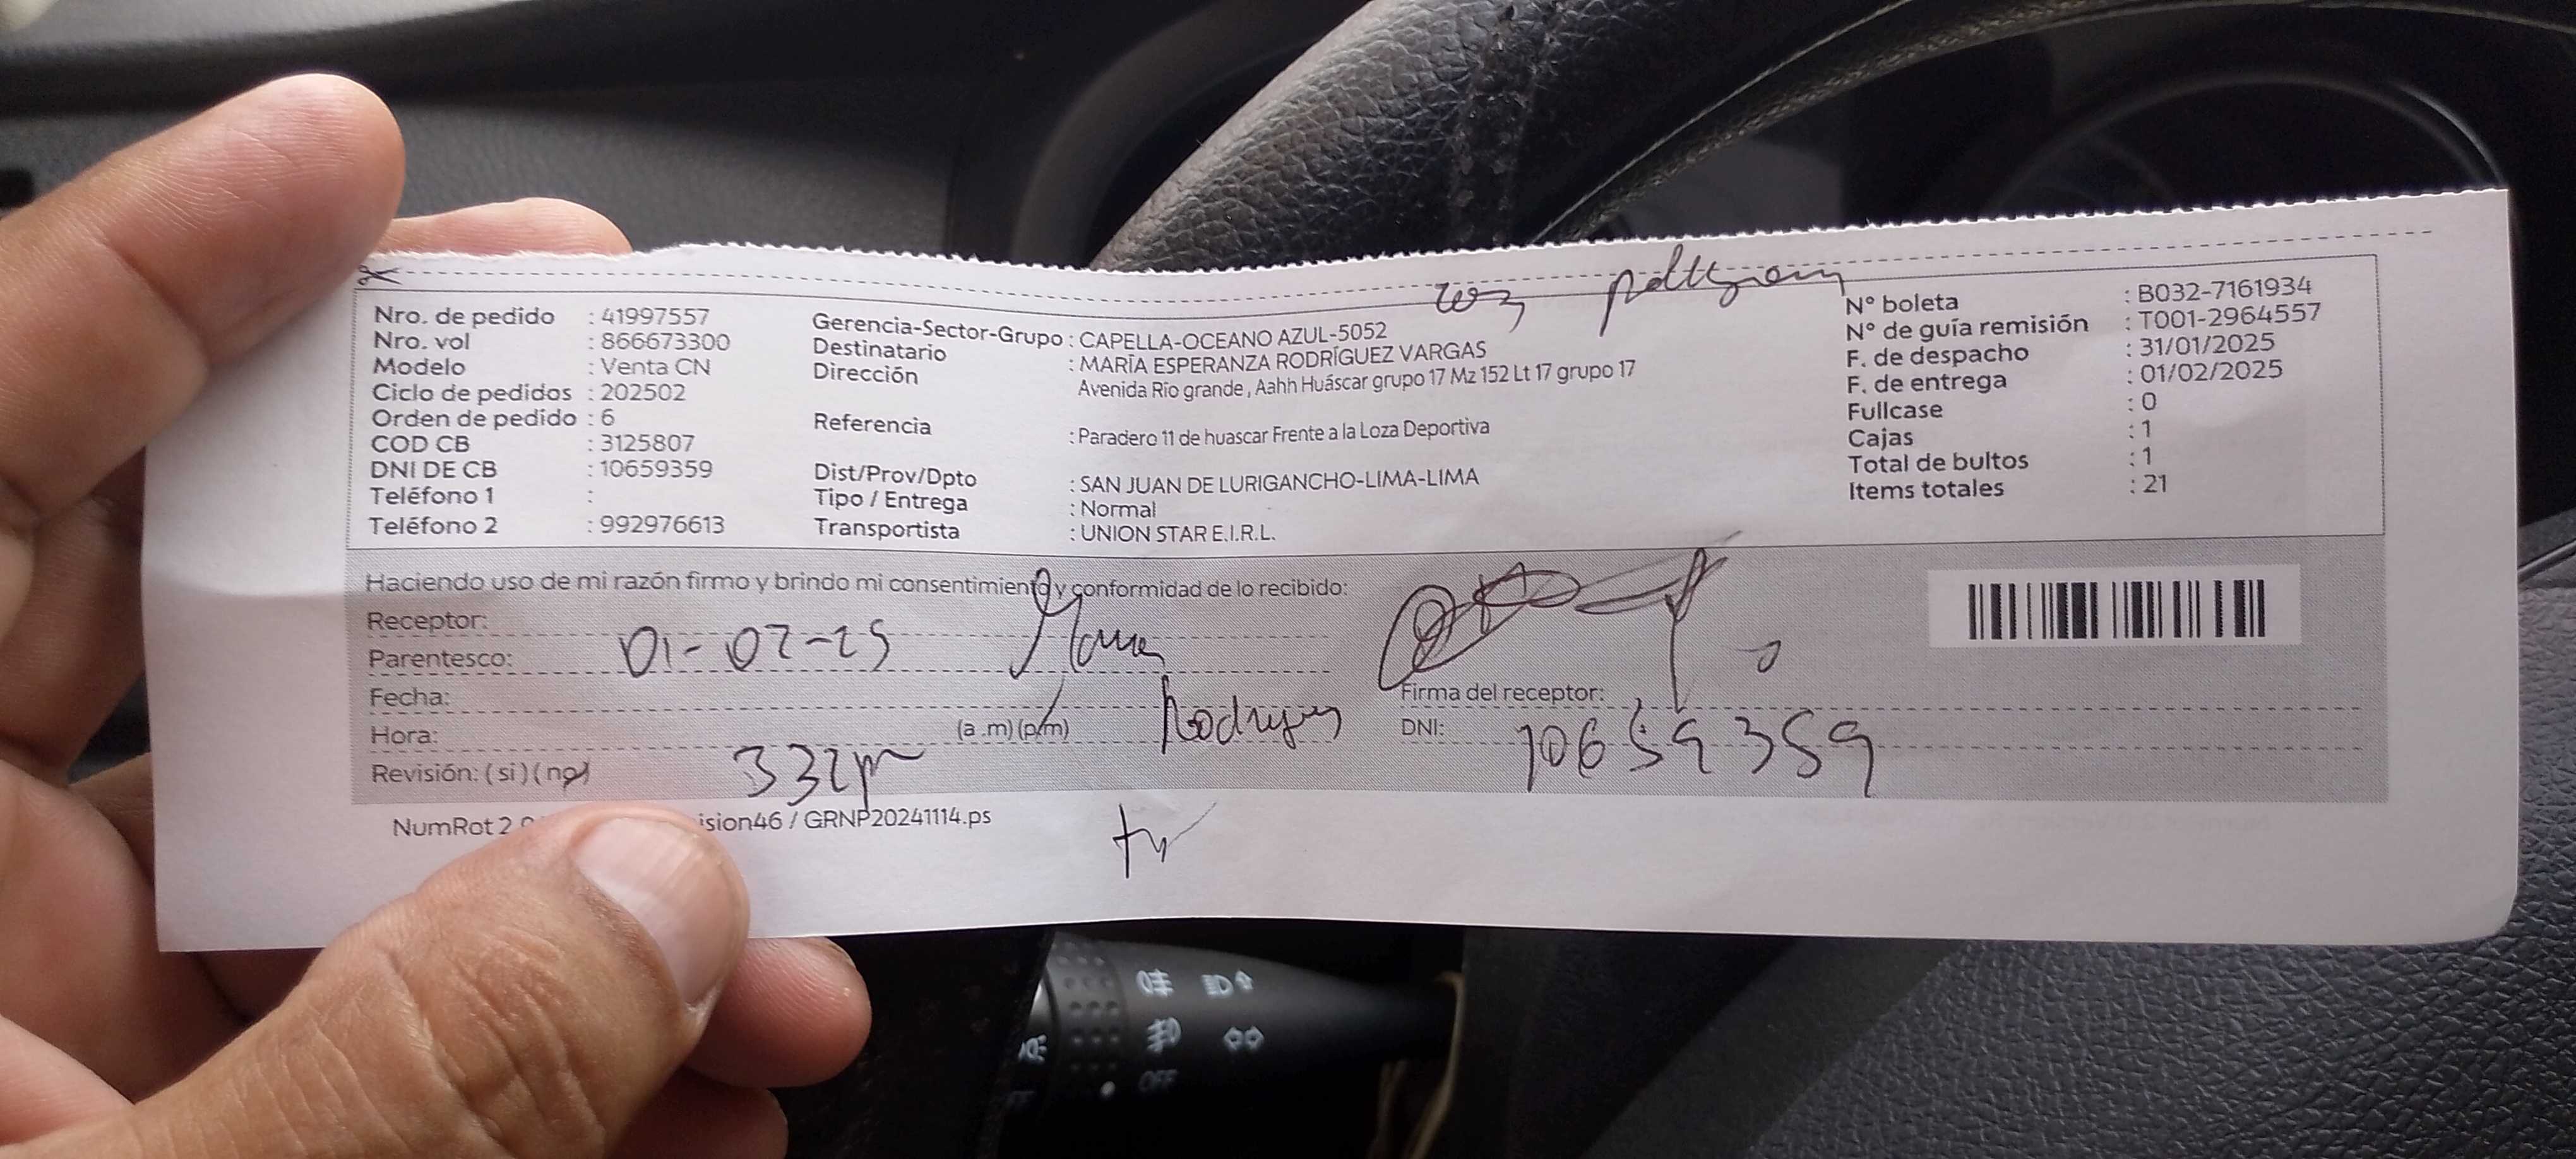 Nro. de pedido : 41997557
Nro. vol : 866673300
Modelo : Venta CN
Ciclo de pedidos : 202502
Orden de pedido : 6
COD CB : 3125807
DNI DE CB : 10659359
Teléfono 1 :
Teléfono 2 : 992976613
Gerencia-Sector-Grupo : CAPELLA-OCEANO AZUL-5052
Destinatario : MARÍA ESPERANZA RODRÍGUEZ VARGAS
Dirección Avenida Río grande , Aahh Huáscar grupo 17 Mz 152 Lt 17 grupo 17
Referencia : Paradero 11 de huascar Frente a la Loza Deportiva
Dist/Prov/Dpto : SAN JUAN DE LURIGANCHO-LIMA-LIMA
Tipo / Entrega : Normal
Transportista : UNION STAR E.I.R.L.
N° boleta : B032-7161934
N° de guía remisión : T001-2964557
F. de despacho : 31/01/2025
F. de entrega : 01/02/2025
Fullcase : 0
Cajas : 1
Total de bultos : 1
Items totales : 21
Haciendo uso de mi razón firmo y brindo mi consentimiento y conformidad de lo recibido:
Receptor:
Parentesco: 01-02-25
Fecha:
Hora: (a .m) (p.m)
Revisión: ( si ) ( no ) 332pm
Firma del receptor:
DNI: 10659359
NumRot 2 ision46 / GRNP20241114.ps
OFF